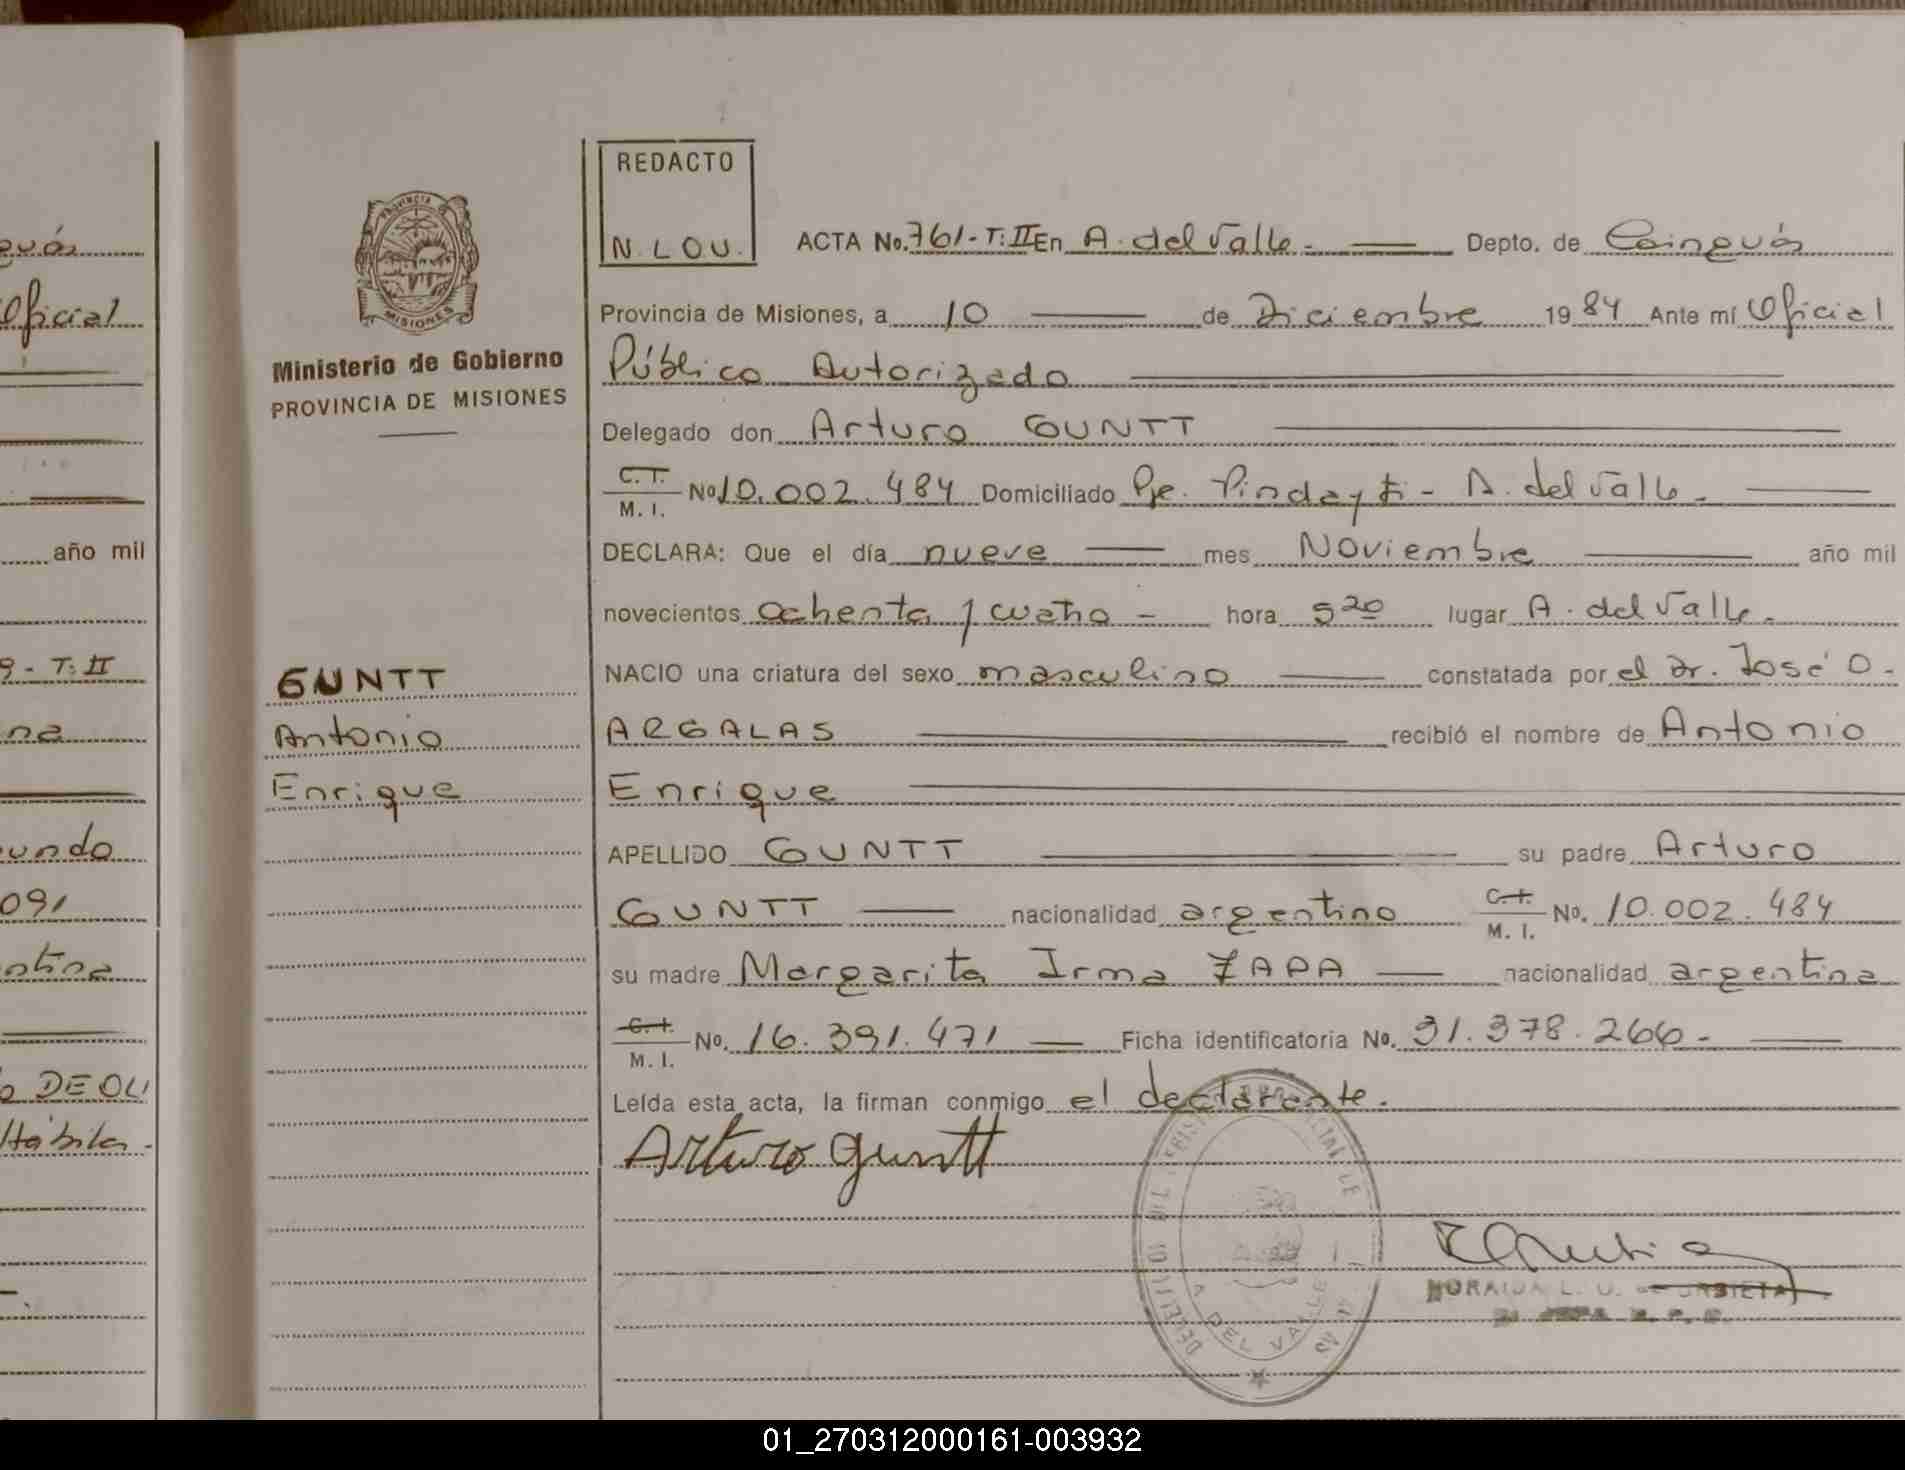 guás
Oficial
año mil
9 - T: II
na
undo
091
ntina
DE OLI
Hábiles.
PROVINCIA DE
MISIONES
Ministerio de Gobierno
PROVINCIA DE MISIONES
GUNTT
Antonio
Enrique
REDACTO
N. L. O. U.
ACTA No. 761 - T: II En A. del Valle. — Depto. de Cainguás
Provincia de Misiones, a 10 — de Diciembre 1984 Ante mí Oficial
Público Autorizado
Delegado don Arturo GUNTT
C. I.
M. I. No 10.002.484 Domiciliado Pje. Pindayti - A. del Valle. —
DECLARA: Que el día nueve — mes Noviembre — año mil
novecientos ochenta y cuatro - hora 5 20 lugar A. del Valle.
NACIO una criatura del sexo masculino — constatada por el Dr. José O.
ARGALAS — recibió el nombre de Antonio
Enrique
APELLIDO GUNTT — su padre Arturo
GUNTT — nacionalidad argentino C. I. M. I. No. 10.002.484
su madre Margarita Irma ZAPA — nacionalidad argentina
C. I.
M. I. No. 16.391.471 — Ficha identificatoria No. 31.378.266. —
Leída esta acta, la firman conmigo el declarante.
Arturo guntt
A DEL VALLE
NORAIDA L. U. de URBIETA
01_270312000161-003932